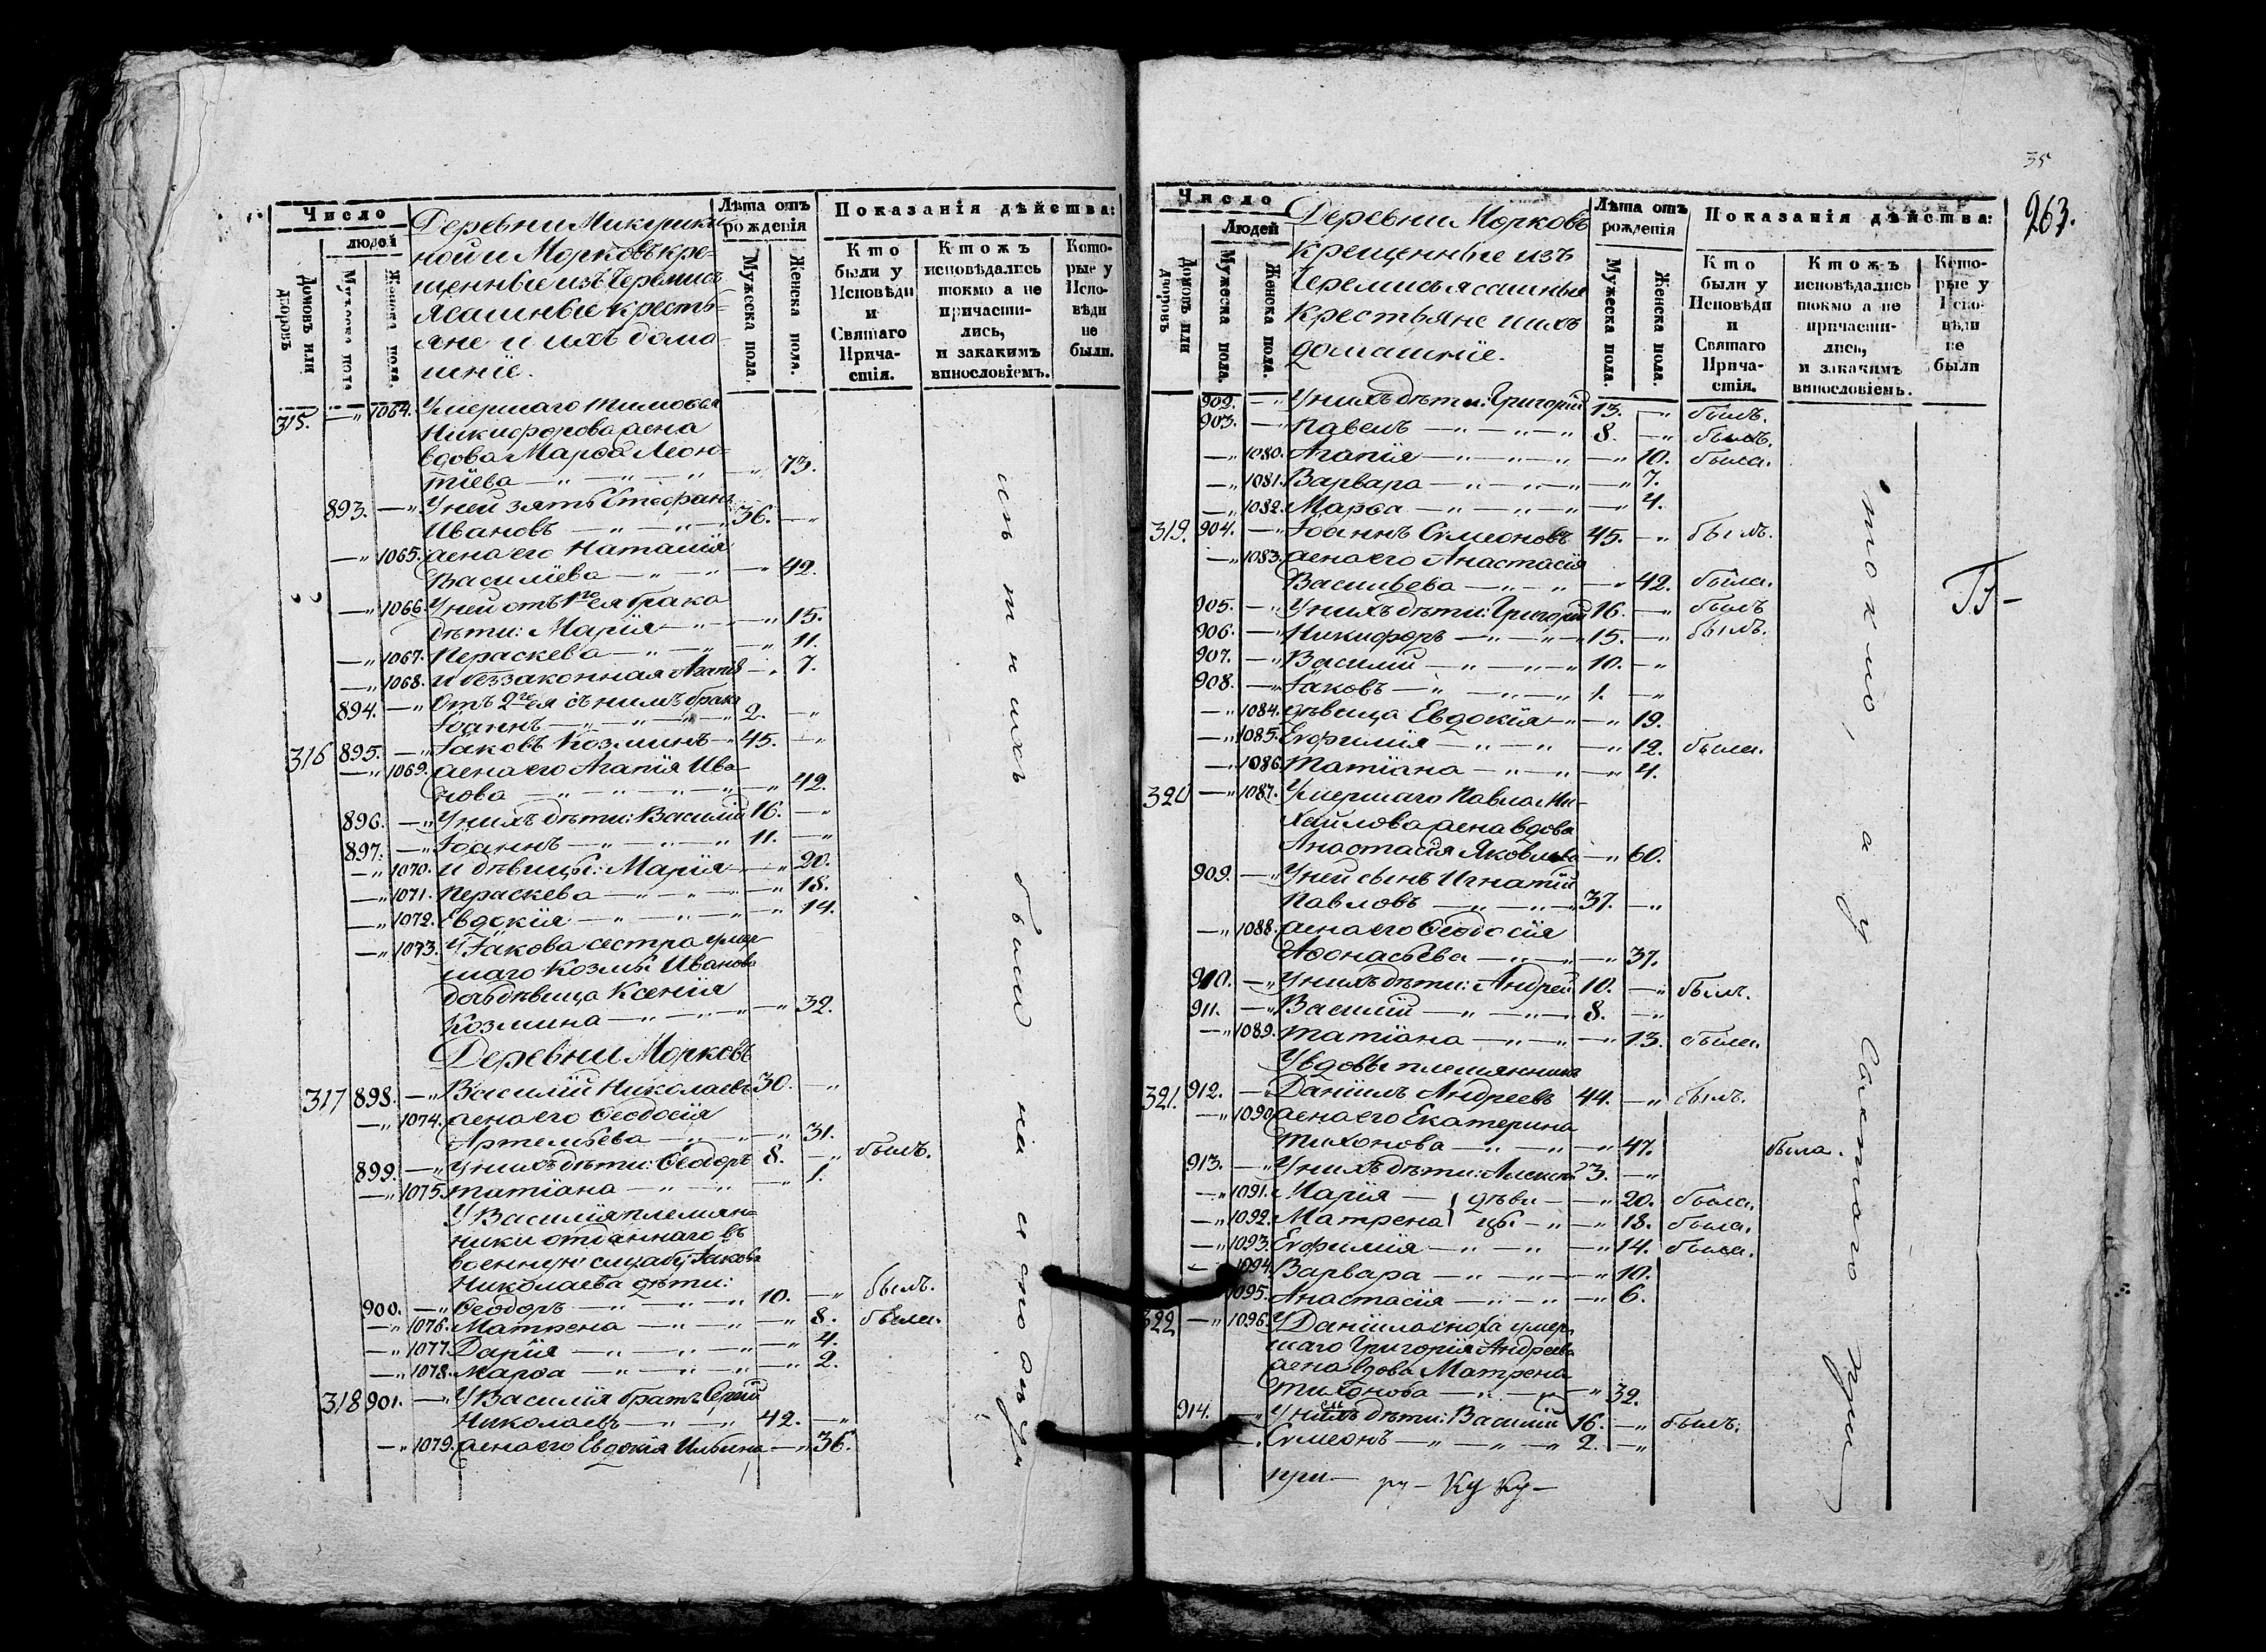 Число
людей
Домовъ или дворовъ
Мужеска пола
Женска пола.
Деревни
ной и Морковъ кре-
щенные изъ Черемисъ
ясашные кресть-
яне и ихъ дома-
шніе.
Лѣта отъ рожденія
Мужеска пола.
Женска пола.
Показанія дѣйства:
Кто были у Исповѣди и Святаго Прича-стія.
Ктожъ исповѣдались токмо а не причасти-лись, и закакимъ винословіемъ.
Кото-рые у Испо-вѣди не были.
315. —„ 1064. Умершаго Тимофея
Никифорова жена
вдова Марѳа Леон-
тіева —„ —„ —„ —„ 73.
893. —„ У ней зять Стефанъ
Ивановъ —„ —„ 36. —„
—„ 1065. жена его Наталія
Василіева —„ —„ —„ 42.
—„ 1066. У ней отъ 1го ея брака
дѣти: Марія —„ —„ 15.
—„ 1067. Пераскева —„ —„ —„ 11.
—„ 1068. и беззаконная Агапія —„ 7.
894. —„ Отъ 2го ея съ нимъ брака
Іоаннъ —„ —„ —„ 2. —„
316 895. —„ Іаковъ Козминъ —„ 45. —„
—„ 1069. жена его Агапія Ива-
нова —„ —„ —„ —„ 42.
896. —„ У нихъ дѣти: Василій 16. —„
897. —„ Іоаннъ —„ —„ —„ 11. —„
—„ 1070. и дѣвицы: Марія —„ —„ 20.
—„ 1071. Пераскева —„ —„ —„ 18.
—„ 1072. Евдокія —„ —„ —„ —„ 14.
—„ 1073. У Іакова сестра умер-
шаго Козмы Иванова
дочь дѣвица Ксенія
Козмина —„ —„ —„ —„ 32.
Деревни Морковъ
317 898. —„ Василій Николаевъ 30. —„
—„ 1074. жена его Ѳеодосія
Артемьева —„ —„ —„ 31.
899. —„ У нихъ дѣти: Ѳеодоръ 8. —„ былъ.
—„ 1075. Татіана —„ —„ —„ 1.
У Василія племян-
ники отданнаго въ
военную службу Іакова
Николаева дѣти:
900. —„ Ѳеодоръ —„ —„ —„ 10. —„ былъ.
—„ 1076. Матрена —„ —„ —„ 8. была.
—„ 1077. Дарія —„ —„ —„ —„ 4
—„ 1078. Марѳа —„ —„ —„ —„ 2.
318 901. —„ У Василія братъ Сергій
Николаевъ —„ —„ 42. —„
—„ 1079. жена его Евдокія Ильина —„ 36.
изъ нихъ было на исповѣди
35
263.
Число
Людей
Домовъ или дворовъ
Мужеска пола.
Женска пола.
Деревни Морковъ
крещенные изъ
Черемисъ ясашныя
крестьяне и ихъ
домашніе.
Лѣта отъ рожденія
Мужеска пола.
Женска пола.
Показанія дѣйства:
Кто были у Исповѣди и Святаго Прича-стія.
Ктожъ исповѣдались токмо а не причасти-лись, и закакимъ винословіемъ.
Кото-рые у Испо-вѣди не были
902. —„ У нихъ дѣти: Григорій 13. —„ былъ.
903. —„ Павелъ —„ —„ —„ 8. —„ былъ.
—„ 1080. Агапія —„ —„ —„ —„ 10. была.
—„ 1081. Варвара —„ —„ —„ —„ 7.
—„ 1082. Марѳа —„ —„ —„ —„ 4.
319. 904. —„ Іоаннъ Симеоновъ 45. —„ былъ.
—„ 1083. жена его Анастасія
Васильева —„ —„ —„ 42. была.
905. —„ У нихъ дѣти: Григорій 16. —„ былъ
906. —„ Никифоръ —„ —„ 15. —„ былъ.
907. —„ Василій —„ —„ —„ 10. —„
908. —„ Іаковъ —„ —„ —„ 1. —„
—„ 1084. дѣвица Евдокія —„ —„ 19.
—„ 1085. Евфимія —„ —„ —„ 12. была.
—„ 1086. Татіана —„ —„ —„ 4.
320 —„ 1087. Умершаго Павла Ми-
хайлова жена вдова
Анастасія Яковлева —„ 60.
909. —„ У ней сынъ Игнатій
Павловъ —„ —„ —„ 37. —„
—„ 1088. жена его Ѳеодосія
Аѳонасьева —„ —„ —„ 37.
910. —„ У нихъ дѣти: Андрей 10. —„ былъ.
911. —„ Василій —„ —„ —„ 8. —„
—„ 1089. Татіана —„ —„ —„ 13. была.
У вдовы племянникъ
321. 912. —„ Даніилъ Андреевъ 44. —„ былъ.
—„ 1090. жена его Екатерина
Тихонова —„ —„ —„ 47. была.
913. —„ У нихъ дѣти: 3. —„
—„ 1091. Марія — дѣви- —„ 20. была.
—„ 1092. Матрена цы —„ —„ 18. была.
—„ 1093. Евфимія —„ —„ —„ 14. была.
1094. Варвара —„ —„ —„ 10.
1095. Анастасія —„ —„ —„ 6.
322 —„ 1096. У Даніила сноха умер-
шаго Григорія Андреева
жена вдова Матрена
Тихонова —„ —„ —„ 32.
914. —„ У нихъ дѣти: Василій 16. —„ былъ.
—„ Симеонъ —„ —„ —„ 2. —„
токмо, а у Святаго При